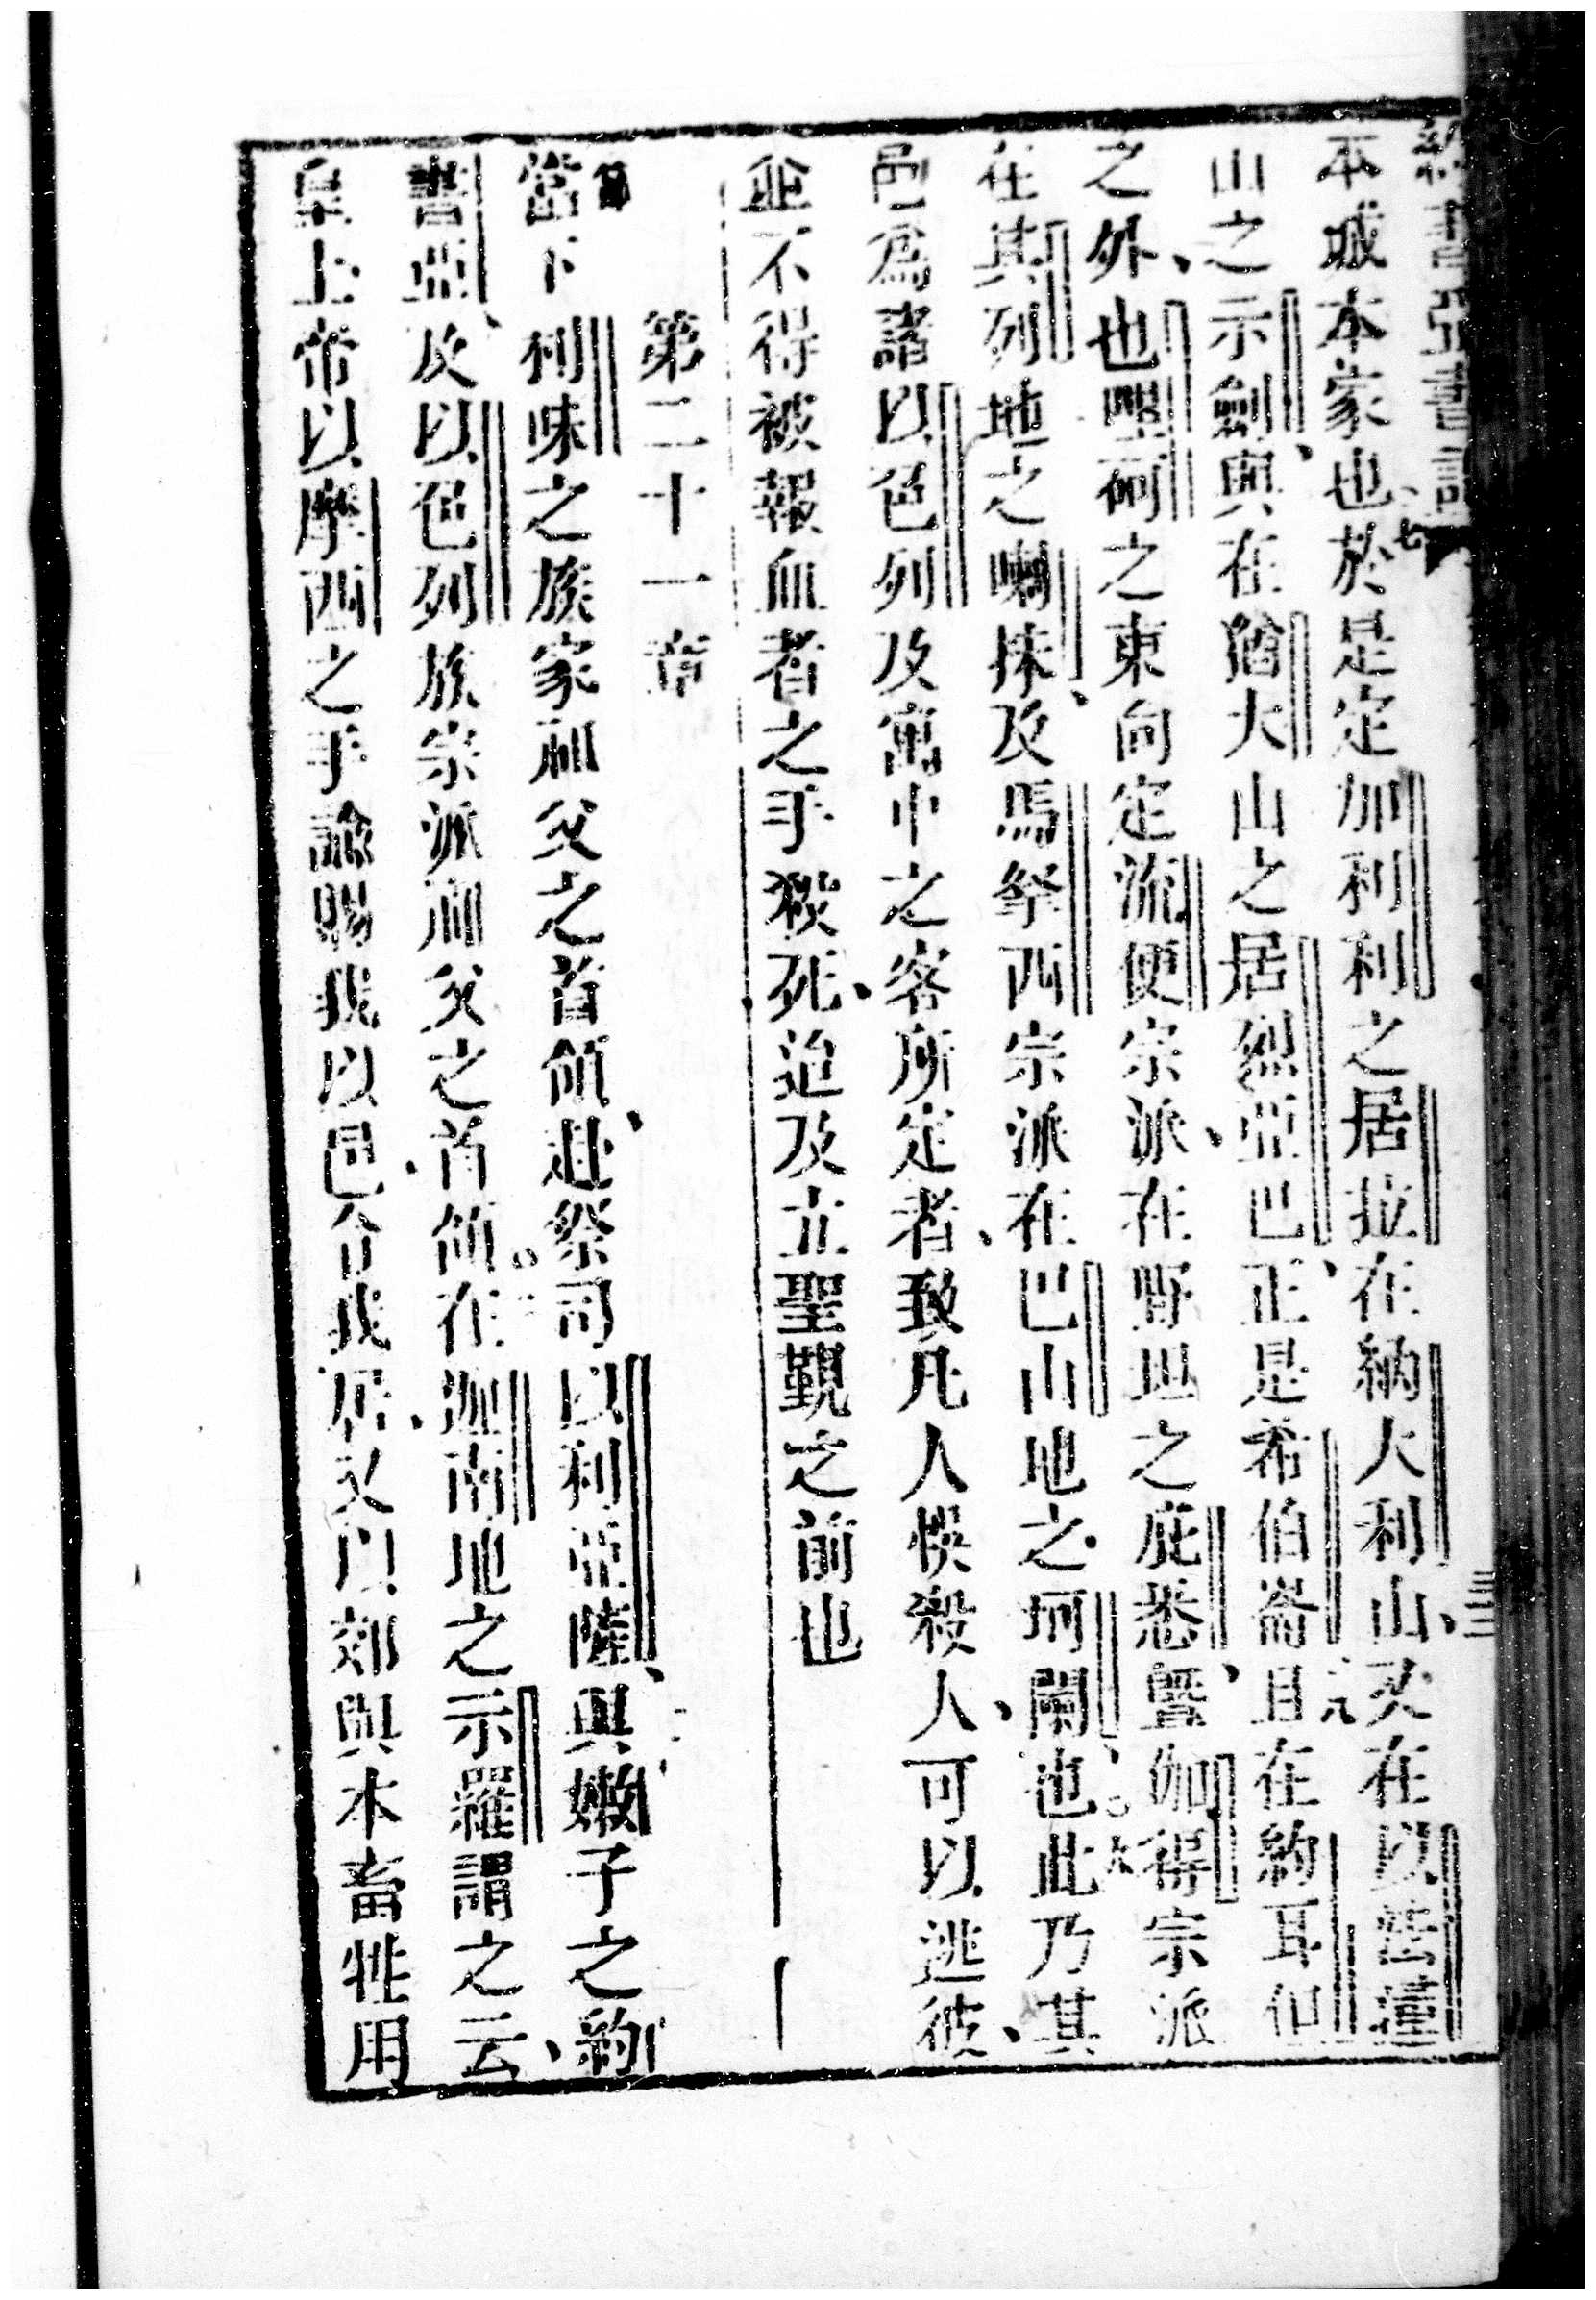 本城本家也七於是定加利利之居拉在納大利山、又在以
山之示劍、與在猶大山之居烈亞巴、正是希伯崙且八在約耳但
之外、也哩哥之東向定流便宗派、在野地之庇悉、曁伽得宗派
在其列地之喇抹、及馬拏西宗派在巴山地之坷闌也。九此乃其
邑爲諸以色列及寓中之客所定者、致凡人悞殺人、可以逃彼、
並不得被報血者之手殺死、迨及立聖覲之前也
第二十一章
節
當下利味之族家祖父之首領、赴祭司以利亞薩、與嫩子之約
書亞、及以色列族宗派祖父之首領。二在迦南地之示羅謂之云、
皇上帝以摩西之手諭賜我以邑、令我居、又以郊與本畜牲用